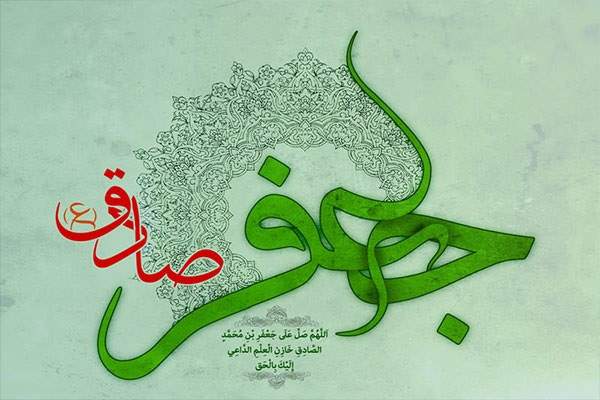 جعفر
صادق
(ع)
اَللّهُمَّ صَلِّ عَلى جَعْفَرِ بْنِ مُحَمَّدٍ
الصّادِقِ خازِنِ الْعِلْمِ الدّاعي
إِلَيْكَ بِالْحَق